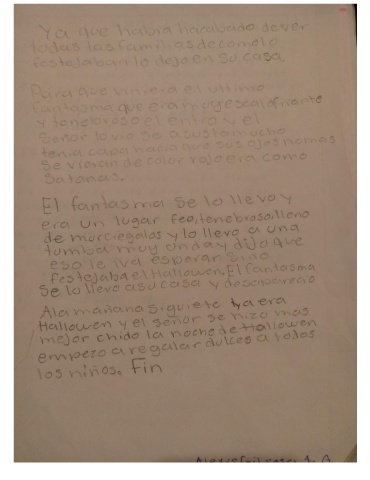 Ya que habia hacabado de ver
todas las familias de como lo
festejaban lo dejo en su casa
Para que viniera el ultimo
fantasma que era muy escalofriante
y tenebroso el entro y el
Señor lo vio se asusto mucho
tenia capa hacia que sus ojos nomas
Se vieran de color rojo era como
Satanas.
El fantasma se lo llevo y
era un lugar feo, tenebroso, lleno
de murciegalos y lo llevo a una
tumba muy onda y dijo que
eso le iva esperar si no
festejaba el Halloween. El fantasma
Se lo llevo a su casa y desaparecio
Ala mañana siguiete ya era
Hallowen y el señor se hizo mas
mejor chido la noche de Hallowen
empezo a regalar dulces a todos
los niños. Fin